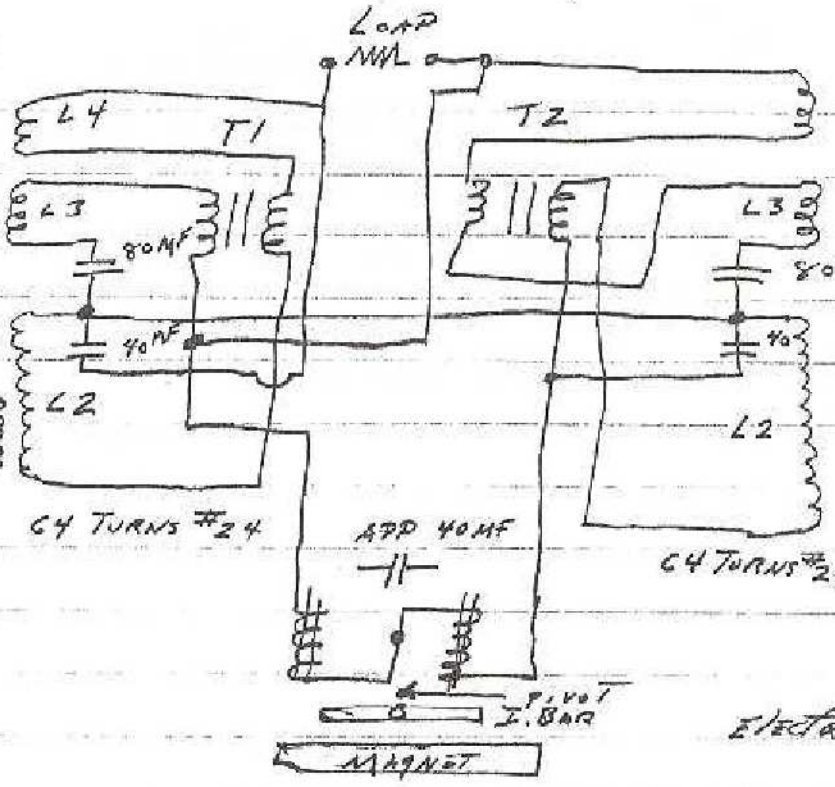 LOAD
L4
T1
T2
L3
L3
80MF
80
40MF
40
L2
L2
64 TURNS #24
ADD 40MF
64 TURNS #2
PIVOT
I. BAR
MAGNET